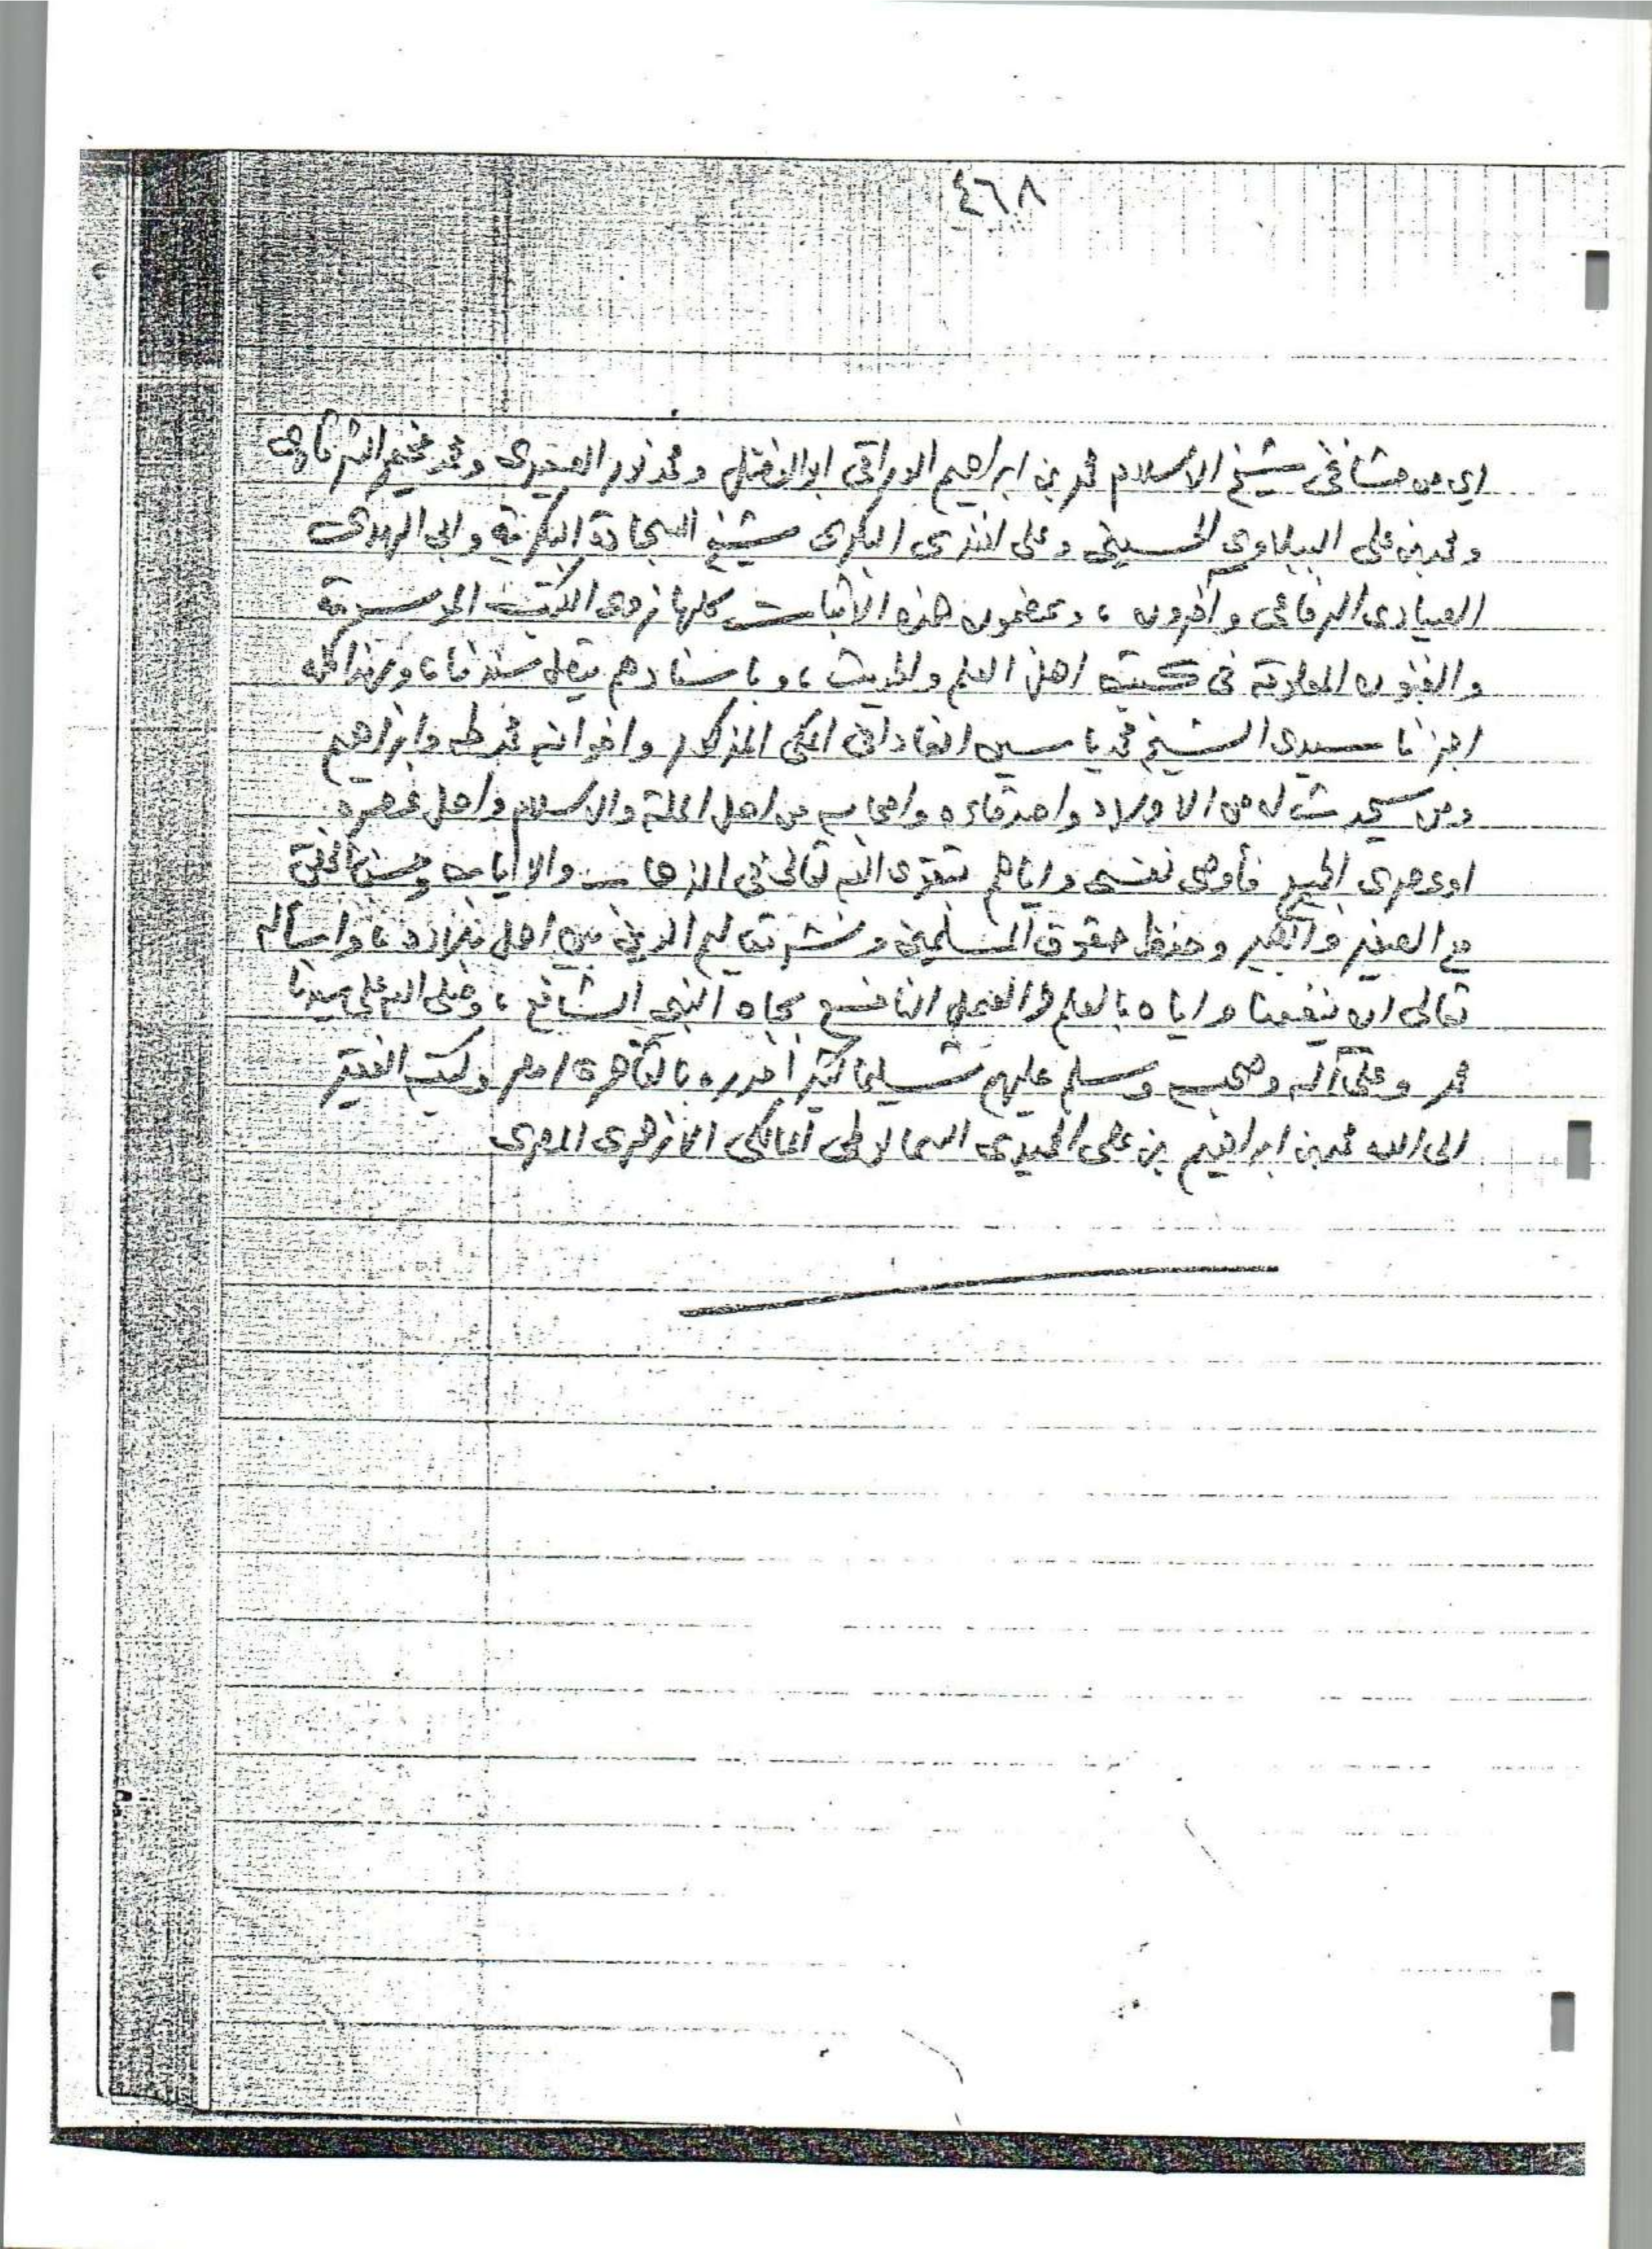 ٤٦٨
اي من مشائخى شيخ الاسلام محمد بن ابراهيم الوراقى ابو الفضل ومحمد نور
ومحمد بن على الببلاوى الحسينى وعلى افندى البكرى شيخ السجادة البكرية وابي الهدى
الصيادى الرفاعى وآخرون ، وبمضمون هذه الأثبات كلها نروى الكتب المدرسية
والفنون المعلومة فى كتب اهل العلم والحديث ، و باسنادهم يتصل سندنا ، وبهذا كله
اجزنا سيدى الشيخ محمد ياسين الفادانى المكى المذكور واخوانه محمد طه وابراهيم
ومن سيحدث له من الاولاد واصدقاءه واصحابه من اهل الملة والاسلام واهل عصره
اوعصرى الجميع فأوصى نفسى واياهم بتقوى الله تعالى فى الذهاب والاياب وحسن
مع الصغير والكبير وحفظ حقوق المسلمين ونشر تعاليم الدين بين اهل بلاده ، واسأله
تعالى ان ينفعنا واياه بالعلم والعمل النافع بجاه النبى الشافع ، وصلى الله على سيدنا
محمد وعلى آله وصحبه وسلم عليهم تسليما كثيرا حرره بالقاهرة / مصر وكتبه الفقير
الى الله محمد بن ابراهيم بن على الحميدى السمالوطى المالكى الازهرى المصرى